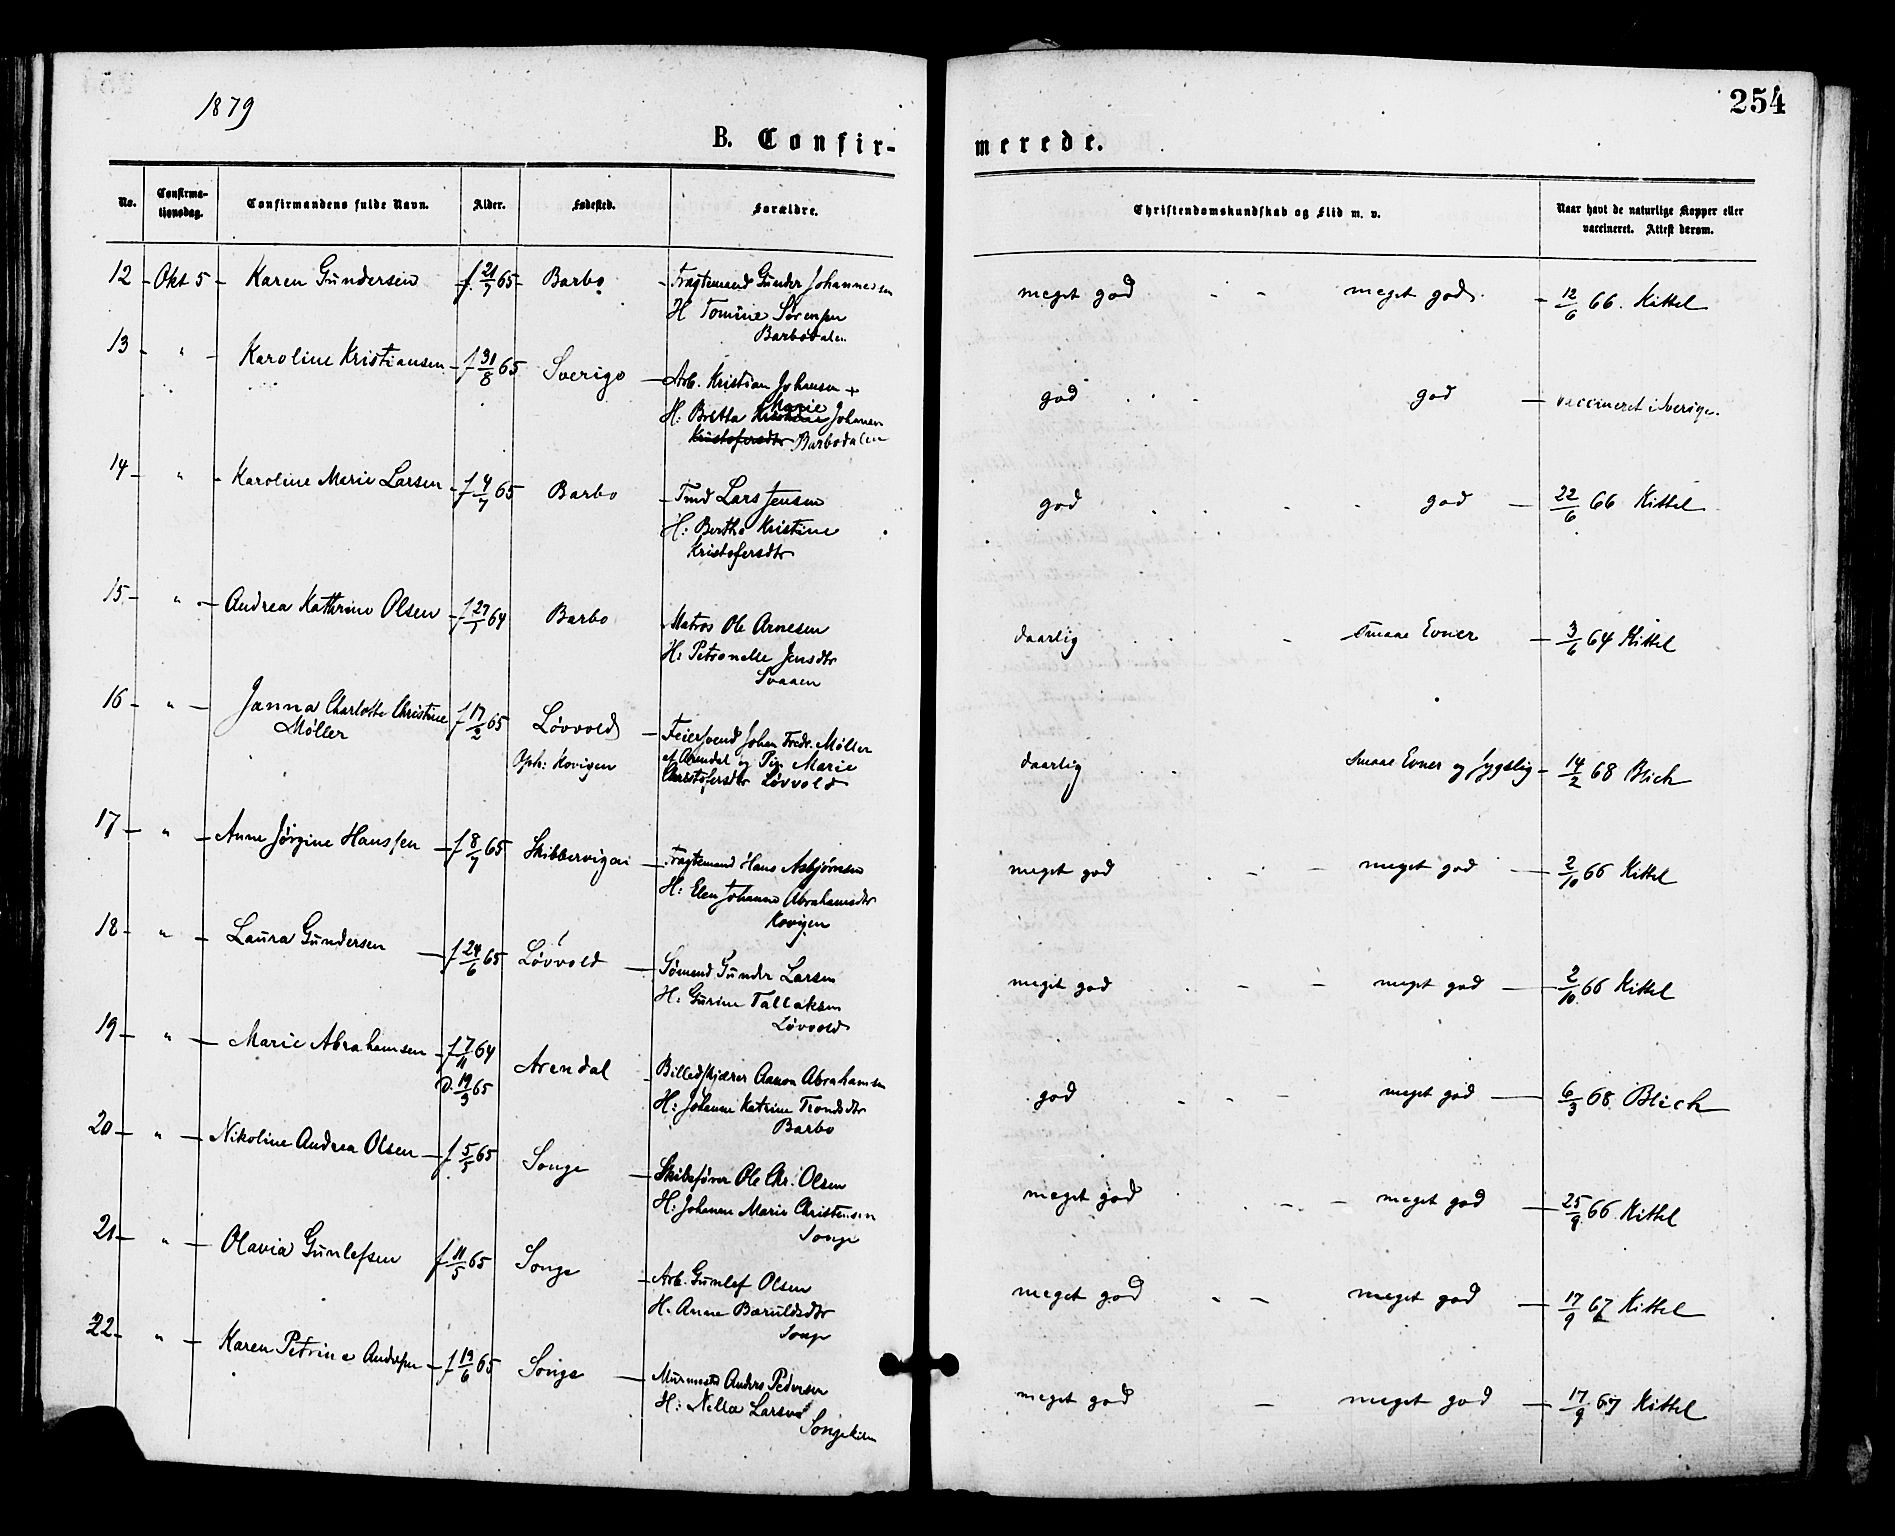 1879
254
B. Confir-
merede.
No. Confirma-tionsdag. Confirmandens fulde Navn. Alder. Fødested. Forældre. Christendomskundskab og Flid m. v. Naar havt de naturlige Kopper eller vaccineret. Attest derom.
12 - Okt 5 - Karen Gundersen f. 21/7 65 Barbo Fragtemand Gunder Johannesen meget god - - meget god - 12/6 66. Kittel
H Tomine Sørensen
Barbodalen
13 - " - Karoline Kristiansen f 31/8 65 Sverige Arb. Kristian Johansen + god - god - vaccineret i Sverige.
Marie
H: Britta Johansen
Kristofersdtr Barbodalen
14 - " - Karoline Marie Larsen f 4/7 65 Barbo Tmd Lars Jensen god - god - 22/6 66 Kittel
H: Berthe Kristine
Kristofersdtr
15 - " - Andrea Kathrine Olsen f 27/1 64 Barbo Matros Ole Arnesen daarlig - smaae Evner - 3/6 64 Kittel
H: Petronelle Jensdtr
Svaaen
16 - " - Janna Charlotte Christine f 17/2 65 Løvvold Feiersvend Johan Fredr. Møller
Møller Oph: Kovigen af Arendal og Pige Marie daarlig smaae Evner og sygelig - 14/2 68 Blich
Christofersdtr Løvvold
17 - " - Anne Jørgine Hanssen f 8/7 65 Skibbervigen Fragtemand Hans Asbjørnsen meget god - - meget god - 2/10 66 Kittel
H: Elen Johanne Abrahamsdtr
Kovigen
18 - " - Laura Gundersen f 24/6 65 Løvvold Sømand Gunder Larsen meget god - - meget god - 2/10 66 Kittel
H: Gurine Tallaksen
Løvvold
19 - " - Marie Abrahamsen f 7/11 64 Arendal Billedskjærer Aanon Abrahamsen god - - - meget god - 6/3 68. Blich
D. 19/3 65 H: Johanne Katrine Trondsdtr
Barbo
20 - " - Nikoline Andrea Olsen f 5/5 65 Songe Skibsfører Ole Chr. Olsen meget god - - meget god - 25/9 66. Kittel
H: Johanne Marie Christensen
Songe
21 - " - Olavia Gunlefsen f 11/5 65 Songe Arb. Gunlef Olsen meget god - - meget god - 17/9 67 Kittel
H. Anne Baruldsdtr
Songe
22 - " - Karen Petrine Andersen f 19/6 65 Songe Murmester Anders Pedersen meget god - meget god - 17/9 67 Kittel
H: Nella Larsen
Songekilen